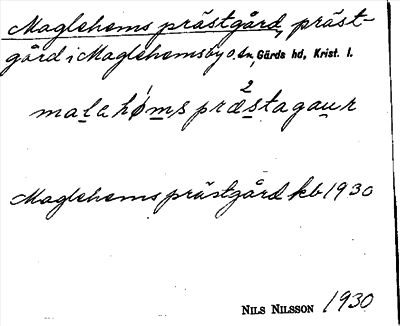 Maglehems prästgård, präst-
gård i Maglehemsby o. sn, Gärds hd, Krist. l.
malahǿms præ²stagaur
Maglehems prästgård kb 1930
NILS NILSSON 1930